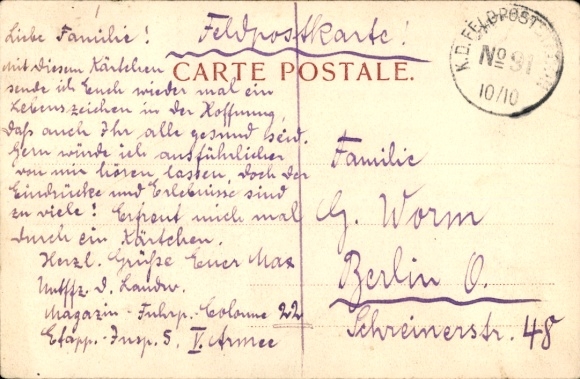 Liebe Familie!
Feldpostkarte!
CARTE POSTALE.
K.D. FELDPOST
No 91
10/10
mit diesem Kärtchen
sende ich Euch wieder mal ein
Lebenszeichen in der Hoffnung,
daß auch Ihr alle gesund seid.
Gern würde ich ausführlicher
von mir hören lassen, doch der
Eindrücke und Erlebnisse sind
zu viele! Erfreut mich mal
durch ein Kärtchen.
Herzl. Grüße Euer Max
Untffz. d. Landw.
Magazin-Fuhrp.-Colonne 22
Etapp.-Insp. 5. V. Armee
Familie
G. Worm
Berlin O.
Schreinerstr. 48